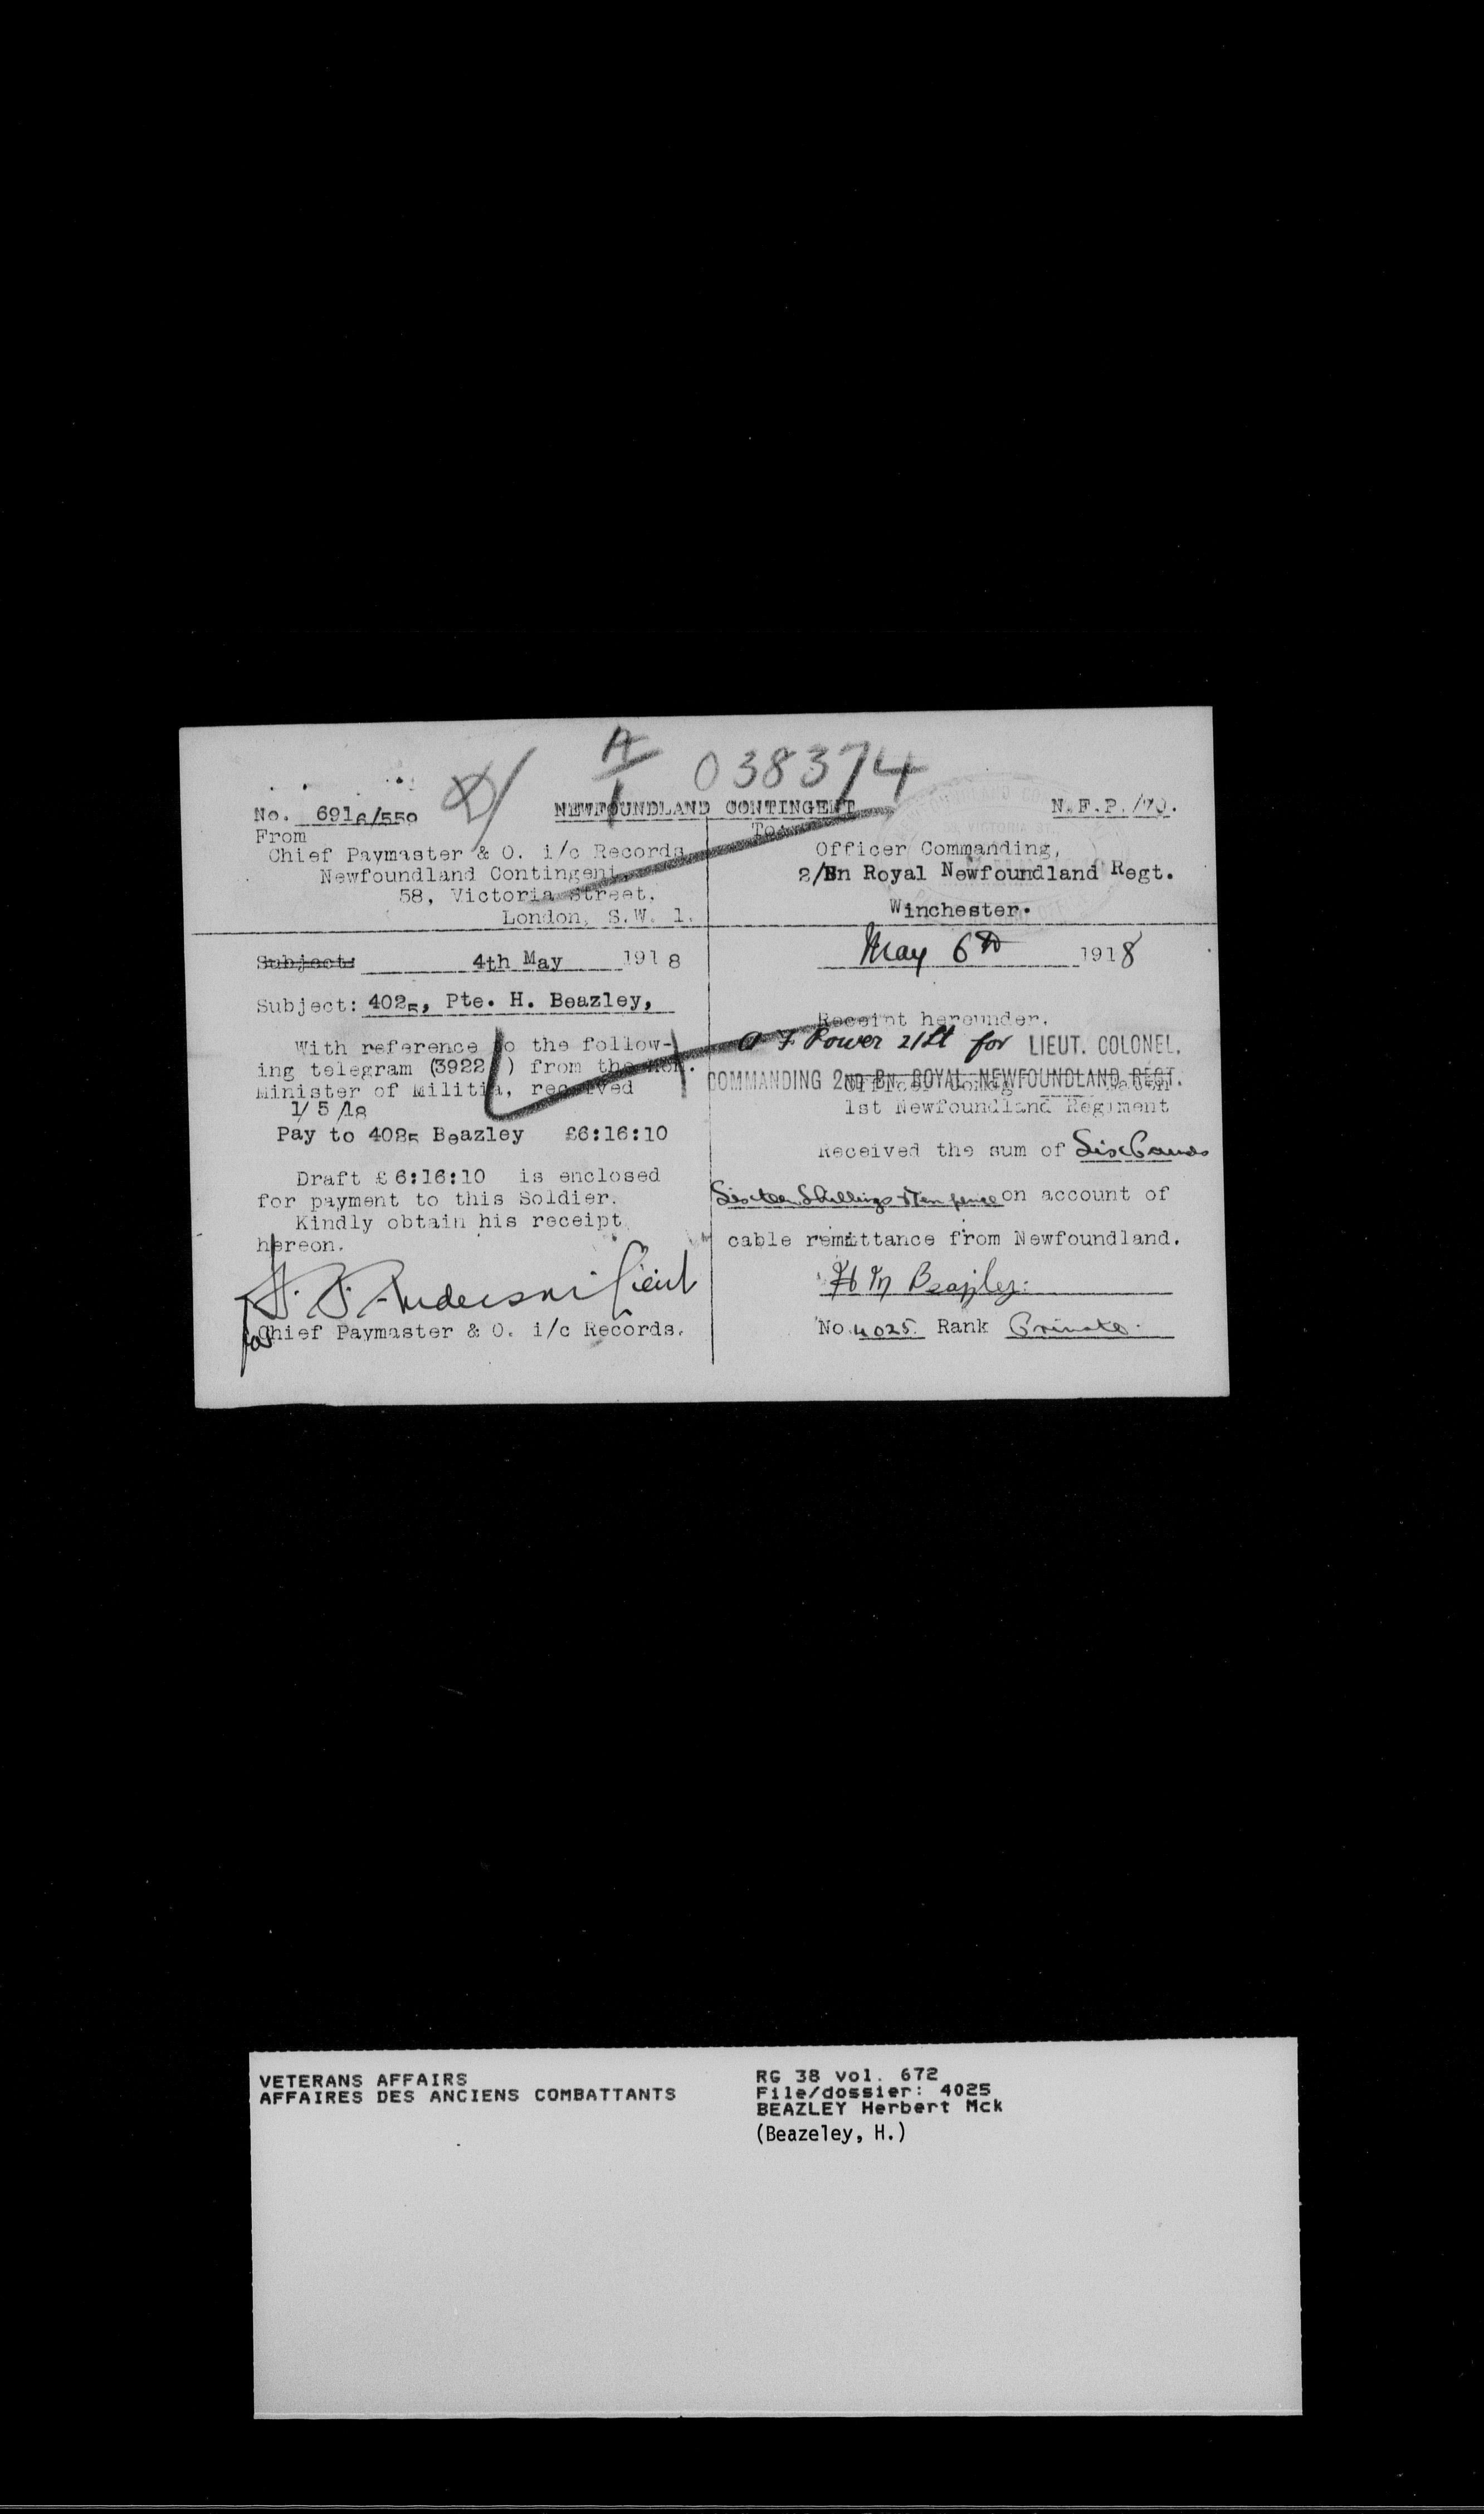 A/1 038374
No. 6916/550
NEWFOUNDLAND CONTINGENT
N.F.P./70.
From
Chief Paymaster & O. i/c Records
Newfoundland Contingent,
58, Victoria Street,
London, S.W. 1.
To:
Officer Commanding,
2/Bn Royal Newfoundland Regt.
Winchester.
Subject: 4th May 1918
Subject: 4025, Pte. H. Beazley,
With reference to the follow-
ing telegram (3922 ) from the Hon.
Minister of Militia, received
1/5/18
Pay to 4025 Beazley £6:16:10
Draft £6:16:10 is enclosed
for payment to this Soldier.
Kindly obtain his receipt
hereon.
Anderson Lieut
for Chief Paymaster & O. i/c Records.
May 6th 1918
Receipt hereunder.
A F Power 2/Lt for LIEUT. COLONEL.
COMMANDING 2ND BN. ROYAL NEWFOUNDLAND REGT.
1st Newfoundland Regiment
Received the sum of Six Pounds
Sixteen Shillings & Ten pence on account of
cable remittance from Newfoundland.
H M Beazley.
No. 4025. Rank Private.
VETERANS AFFAIRS
AFFAIRES DES ANCIENS COMBATTANTS
RG 38 vol. 672
File/dossier: 4025
BEAZLEY Herbert Mck
(Beazeley, H.)